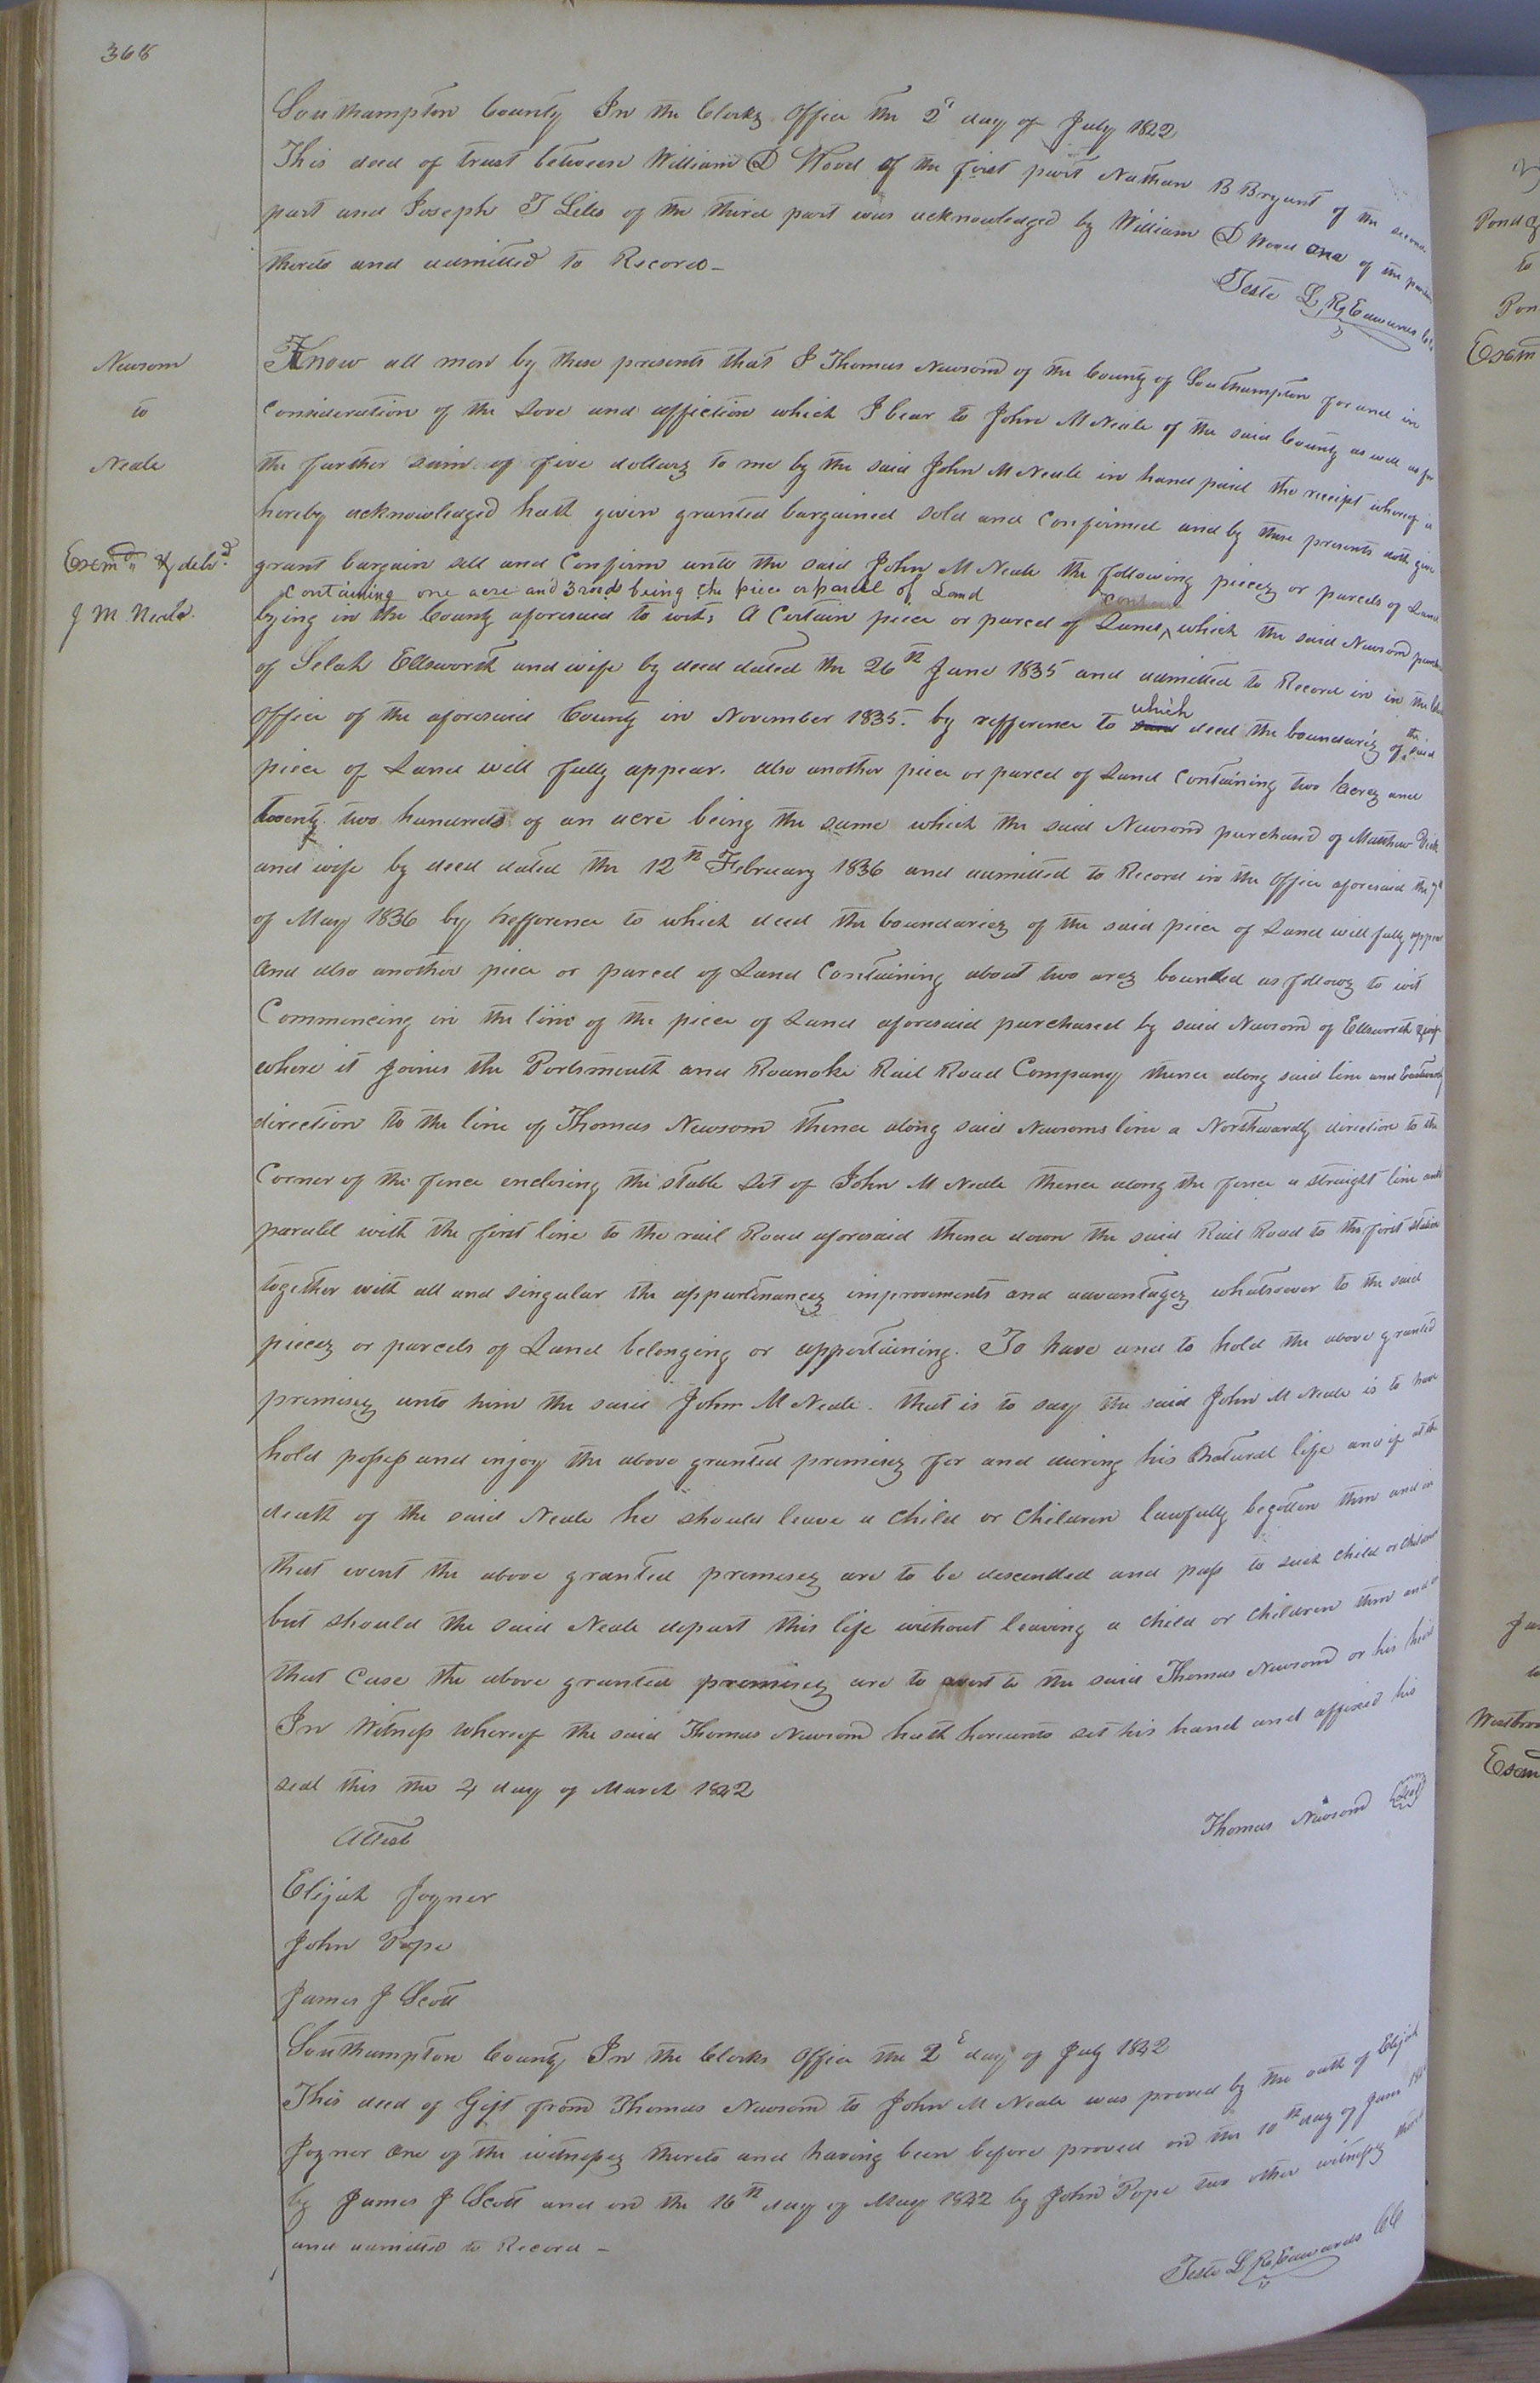 368
Southampton County In the Clerks Office the 2d day of July 1842
This deed of trust between William D Wood of the first part Nathan B Bryant of the second
part and Joseph T Liles of the third part was acknowledged by William D Wood one of the parties
thereto and admitted to Record –
Teste L R Edwards
Newsom
to
Neale
Exemd & deld
J M Neale.
Know all men by these presents that I Thomas Newsom of the County of Southampton for and in
consideration of the Love and affection which I bear to John M Neale of the said County as well as for
the further sum of five dollars to me by the said John M Neale in hand paid the receipt whereof is
hereby acknowledged hath given granted bargained sold and confirmed and by these presents doth give
grant bargain sell and confirm unto the said John M Neale the following pieces or parcels of Land
containing one acre and 3 rods being the piece or parcel of Land
lying in the County aforesaid to wit; A Certain piece or parcel of Land, which the said Newsom
of Selah Ellsworth and wife by deed dated the 26th June 1835 and admitted to Record in in the
Office of the aforesaid County in November 1835. by refference to said which deed the boundaries of the said
piece of Land will fully appear. also another piece or parcel of Land Containing two Acres and
twenty two hundreds of an acre being the same which the said Newsom purchased of Matthew
and wife by deed dated the 12th February 1836 and admitted to Record in the Office aforesaid the
of May 1836 by refference to which deed the boundaries of the said piece of Land will fully appear
and also another piece or parcel of Land Containing about two acres bounded as follows to wit
Commencing in the line of the piece of Land aforesaid purchased by said Newsom of Ellsworth & wife
where it joins the Portsmouth and Roanoke Rail Road Company thence along said line and Eastwardly
direction to the line of Thomas Newsom thence along said Newsoms line a Northwardly direction to the
Corner of the fence enclosing the stable Lot of John M Neale thence along the fence a straight line and
parallel with the first line to the rail Road aforesaid thence down the said Rail Road to the first station
together with all and singular the appurtenances improvements and advantages whatsoever to the said
pieces or parcels of Land belonging or appertaining. To have and to hold the above granted
premises unto him the said John M Neale. that is to say the said John M Neale is to have
hold possess and enjoy the above granted premises for and during his Natural life and if at the
death of the said Neale he should leave a child or Children lawfully begotten then and in
that event the above granted premises are to be descended and pass to such child or children
but should the said Neale depart this life without leaving a child or children then and in
that Case the above granted premises are to revert to the said Thomas Newsom or his heirs
In Witness whereof the said Thomas Newsom hath hereunto set his hand and affixed his
seal this the 4 day of March 1842
Thomas Newsom Seal
Attest
Elijah Joyner
John Pope
James J Scott
Southampton County In the Clerks Office the 2d day of July 1842
This deed of Gift from Thomas Newsom to John M Neale was proved by the oath of Elijah
Joyner one of the witnesses thereto and having been before proved on the 10th day of June
by James J Scott and on the 16th day of May 1842 by John Pope two other witnesses thereto
and admitted to Record –
Teste L R Edwards CC